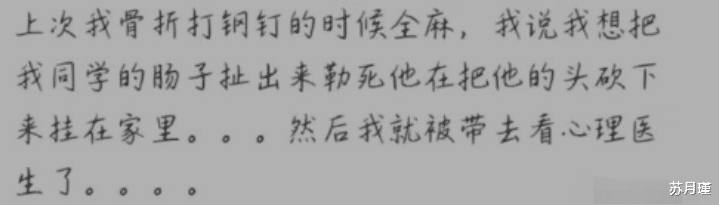 上次我骨折打钢钉的时候全麻，我说我想把
我同学的肠子扯出来勒死他在把他的头砍下
来挂在家里。。。然后我就被带去看心理医
生了。。。。
苏月瑾